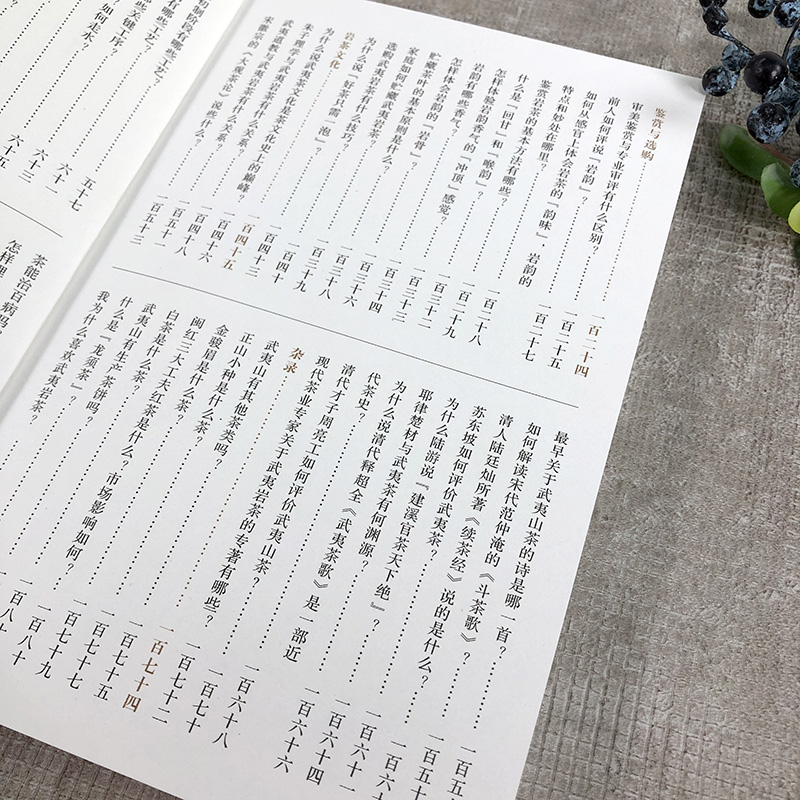 鉴赏与选购……一百二十四
审美鉴赏与专业审评有什么区别?……一百二十五
前人如何评说「岩韵」?……一百二十七
如何从感官上体会岩茶的「韵味」 岩韵的
特点和妙处在哪里?……一百二十八
鉴赏岩茶的基本方法有哪些?……一百二十九
什么是「回甘」和「喉韵」?……一百三十二
怎样体验岩韵香气的「冲顶」感觉?……一百三十三
岩韵有哪些香气?……一百三十四
怎样体会岩韵的「岩骨」?……一百三十六
贮藏茶叶的基本原则是什么?……一百三十八
家庭如何贮藏武夷岩茶?……一百三十九
选购武夷岩茶有什么技巧?……一百四十
为什么说「好茶只需一泡」?……一百四十三
岩茶文化……一百四十五
为什么说武夷茶文化是茶文化史上的巅峰?……一百四十六
朱子理学与武夷岩茶有什么关系?……一百四十八
武夷道教与武夷岩茶有什么关系?……一百五十一
宋徽宗的《大观茶论》说些什么?……一百五十三
最早关于武夷山茶的诗是哪一首?……一百五
如何解读宋代范仲淹的《斗茶歌》?……一百五十
清人陆廷灿所著《续茶经》说的是什么?……一百六十
苏东坡如何评价武夷茶?……一百六十一
为什么陆游说『建溪官茶天下绝』?……一百六十四
耶律楚材与武夷茶有何渊源?……一百六十六
为什么说清代释超全《武夷茶歌》是一部近
代茶史?……一百六十八
清代才子周亮工如何评价武夷山茶?……一百七十
现代茶业专家关于武夷岩茶的专著有哪些?……一百七十二
杂录……一百七十四
武夷山有其他茶类吗?……一百七十五
正山小种是什么茶?……一百七十七
金骏眉是什么茶?……一百七十九
闽红三大工夫红茶是什么?市场影响如何?……一百八十
白茶是什么茶?……一百八十
武夷山有生产茶饼吗?
什么是『龙须茶』?
我为什么喜欢武夷岩茶?
初制阶段有哪些工艺?……五十七
些关键工序?……六十一
如何焙术?……六十三
六十五
茶能治百病吗?
怎样理